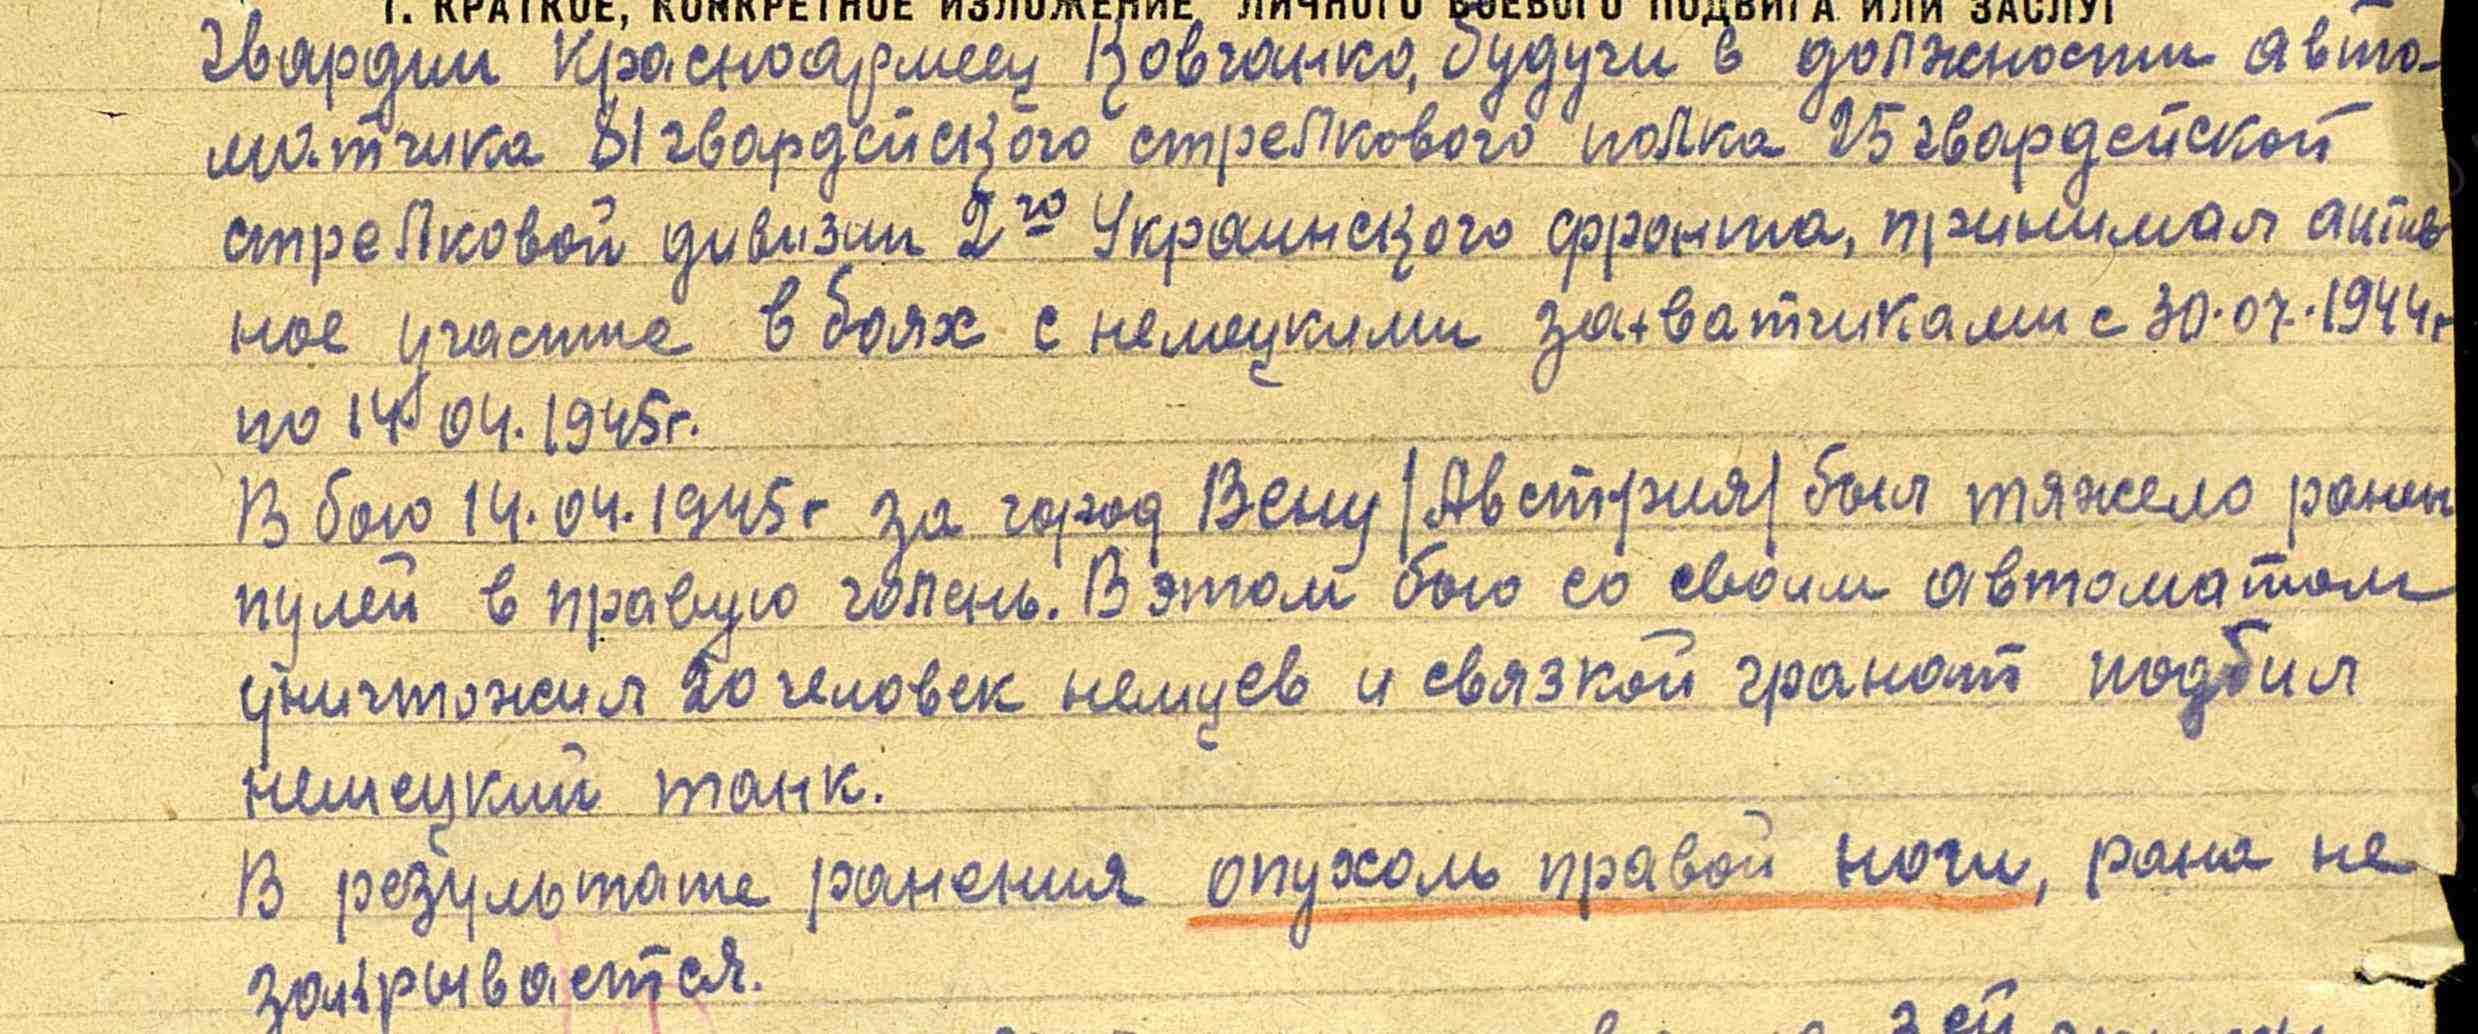 1. КРАТКОЕ, КОНКРЕТНОЕ ИЗЛОЖЕНИЕ ЛИЧНОГО БОЕВОГО ПОДВИГА ИЛИ ЗАСЛУГ
Гвардии Красноармеец Ковчанко, будучи в должности авто-
матчика 81 гвардейского стрелкового полка 25 гвардейской
стрелковой дивизии 2го Украинского фронта, принимал актив
ное участие в боях с немецкими захватчиками с 30.07.1944г
по 14.04.1945г.
В бою 14.04.1945г за город Вену /Австрия/ был тяжело ранен
пулей в правую голень. В этом бою со своим автоматом
уничтожил 20 человек немцев и связкой гранат подбил
немецкий танк.
В результате ранения опухоль правой ноги, рана не
закрывается.